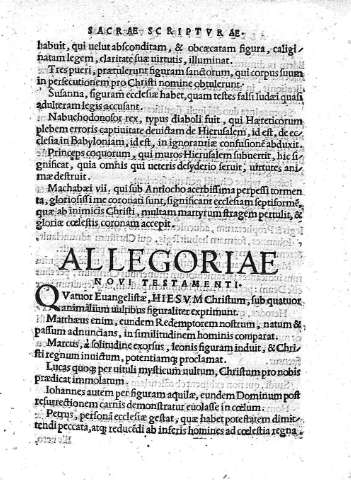 SACRAE SCRIPTVRAE.
habuit, qui uelut absconditam, & obcæcatam figura, caligi
natam legem, claritate suæ uirtutis, illuminat.
Tres pueri, prætulerunt figuram sanctorum, qui corpus suum
in persecutionem pro Christi nomine obtulerunt.
Susanna, figuram ecclesiæ habet, quam testes falsi Iudæi quasi
adulteram legis accusant.
Nabuchodonosor rex, typus diaboli fuit, qui Hæreticorum
plebem erroris captiuitate deuictam de Hierusalem, id est, de ec
clesia in Babyloniam, id est, in ignorantiæ confusionē abduxit.
Princeps coquorum, qui muros Hierusalem subuertit, hic si
gnificat, quia omnis qui ueteris desyderio seruit, uirtutes ani
mæ destruit.
Machabæi vii, qui sub Antiocho acerbissima perpessi tormen
ta, gloriosissime coronati sunt, significant ecclesiam septiformē,
quæ ab inimicis Christi, multam martyrum stragem pertulit, &
gloriæ cœlestis coronam accepit.
ALLEGORIAE
NOVI TESTAMENTI.
QVatuor Euangelistæ, HIESVM Christum, sub quatuor
animalium uultibus figuraliter exprimunt.
Matthæus enim, eundem Redemptorem nostrum, natum &
passum adnuncians, in similitudinem hominis comparat.
Marcus, à solitudine exorsus, leonis figuram induit, & Chri
sti regnum inuictum, potentiamq; proclamat.
Lucas quoq; per uituli mysticum uultum, Christum pro nobis
prædicat immolatum.
Iohannes autem per figuram aquilæ, eundem Dominum post
resurrectionem carnis demonstratur euolasse in cœlum.
Petrus, personā ecclesiæ gestat, quæ habet potestatem dimit
tendi peccata, atq; reducēdi ab inferis homines ad cœlestia regna